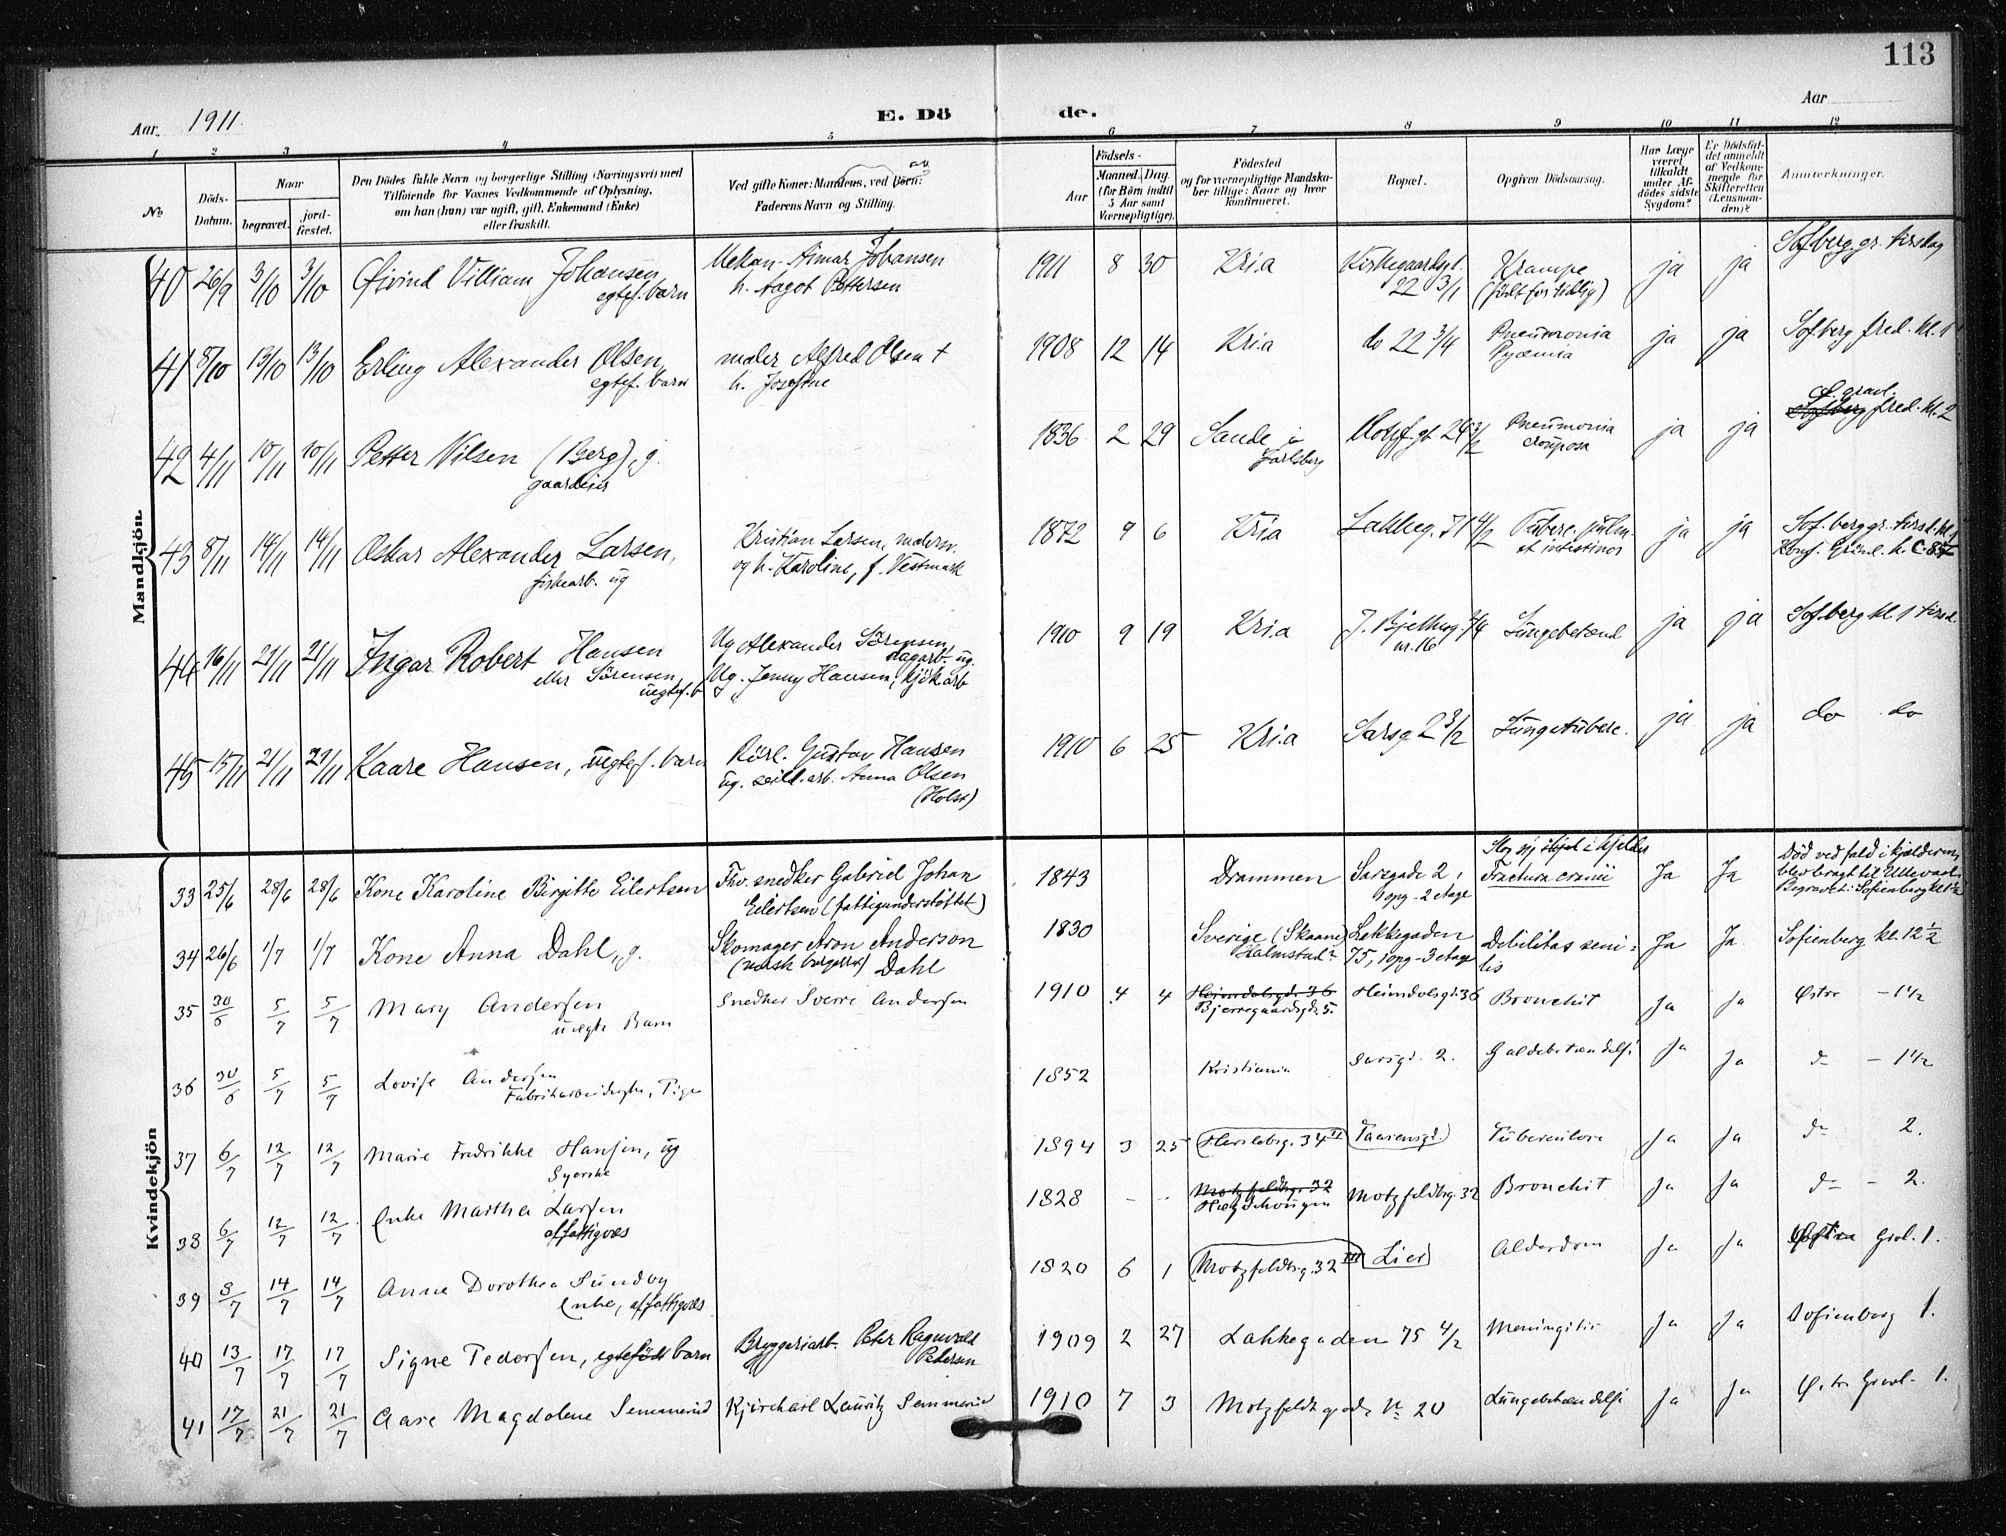 113
Aar. 1911.
E. Dö
de.
Aar
1 2 3 4 5 6 7 8 9 10 11 12
No
Döds-Datum.
Naar
begravet.
jord-fæstet.
Den Dödes fulde Navn og borgerlige Stilling (Næringsvei) med
Tilföiende for Voxnes Vedkommende af Oplysning,
om han (hun) var ugift, gift, Enkemand (Enke)
eller fraskilt.
Ved gifte Koner: Mandens, ved Börn:
Faderens Navn og Stilling.
Födsels-
Aar
Maaned. Dag.
(for Börn indtil
5 Aar samt
Værnepligtige).
Födested
og for værnepligtige Mandska-
ber tillige: Naar og hvor
konfirmeret.
Bopæl.
Opgiven Dödsaarsag.
Har Læge
været
tilkaldt
under Af-
dödes sidste
Sygdom?
Er Dödsfal-
det anmeldt
af Vedkom-
mende for
Skifteretten
(Lensman-
den)?
Anmærkninger.
Mandkjön.
40 26/9 3/10 3/10 Øivind Villiam Johansen egtef. barn Mekan- Aimar Johansen h. Aagot Pettersen 1911 8 30 Kria Kirkegaardsgt. 22 3/1 Krampe (født for tidlig) ja ja Sofberg gr. tirsdag
41 8/10 13/10 13/10 Erling Alexander Olsen, egtef. barn maler Alfred Olsen + h. Josefine 1908 12 14 Kria do 22 3/4 Pneumonia Pyæmia ja ja Sof.berg fred. kl. 1
42 4/11 10/11 10/11 Petter Nilsen (Berg), g. gaardeier 1836 2 29 Sande i Jarlsberg Motzf. gt 24 3/2 Pneumonia crouposa ja ja Ø. gravl. fred. kl. 2
43 8/11 14/11 14/11 Oskar Alexander Larsen, fiskearb. ug Kristian Larsen, malerm. og h. Karoline, f. Vestmark 1872 9 6 Kria Lakkeg. 71 4/2 Tuberc. pulm. et intestinos ja ja Sof. berg gr. tirsd. kl. 1 Konf. Grönl. k.
44 16/11 21/11 21/11 Ingar Robert Hansen eller Sörensen, uegtef. b Ug Alexander Sörensen, dagarb. ug. Ug. Jenny Hansen, kjökarb 1910 9 19 Kria J. Bjelkesg. 7/4 nr. 16 Lungebetænd ja ja Sof.berg kl 1 tirsd.
45 15/11 21/11 21/11 Kaare Hansen, uegtef. barn Rörl. Gustav Hansen ug. seild. arb. Anna Olsen (Holst) 1910 6 25 Kria Sarsg. 2 3/2 Lungetuberc. ja ja do do
Kvindekjön
33 25/6 28/6 28/6 Kone Karoline Birgitte Eilertsen Fhv. snedker Gabriel Johan Eilertsen (fattigunderstöttet) 1843 Drammen Sarsgade 2, opg - 2 etage Slog sig ihjel i kjelder Fractura cranii Ja Ja Död ved fald i kjælderen, blev bragt til Ullevaal. Begravet i Sofienberg
34 26/6 1/7 1/7 Kone Anna Dahl, g. Skomager Aron Anderson (norsk borgerret) Dahl 1830 Sverige (Skaane) Halmstad? Lakkegaden 75, 1 opg - 3 etage Debilitas senilis Ja Ja Sofienberg kl. 12 1/2
35 30/6 5/7 5/7 Mary Andersen uægte Barn Snedker Sverre Andersen 1910 4 4 Heimdalsgd. 36 Bjerregaardsgd. 5. Heimdalsgd. 36 Bronchit Ja Ja Østre - 1 1/2
36 30/6 5/7 5/7 Lovise Andersen Fabrikarbeiderske, Pige 1852 Kristiania Sarsgd. 2. Galdebetændelse Ja Ja do - 1 1/2
37 6/7 12/7 12/7 Marie Fredrikke Hansen, ug Syerske 1894 3 25 Herslebsg. 34 II Taasensgd. Tuberculose Ja Ja do 2.
38 6/7 12/7 12/7 Enke Marthea Larsen af fattigvæs 1828 - - Motzfeldtsg. 32 Motzfeldtsg. 32 Bronchit Ja Ja do - 2.
39 8/7 14/7 14/7 Anne Dorothea Sundby Enke, af fattigvæs 1820 6 1 Motzfeldtsg. 32 III Lier Alderdom Ja Ja Gravl. 1.
40 13/7 17/7 17/7 Signe Pedersen, egtefödt barn Bryggeriarb. Peter Ragnvald Pedersen 1909 2 27 Lakkegaden 75 4/2 Meningitis Ja Ja Sofienberg 1.
41 17/7 21/7 21/7 Aase Magdalene Semmerud Kjörekarl Lauritz Semmerud 1910 7 3 Motzfeldtsgade No 20 Lungebetændelse Ja Ja Østr Gravl. 1.